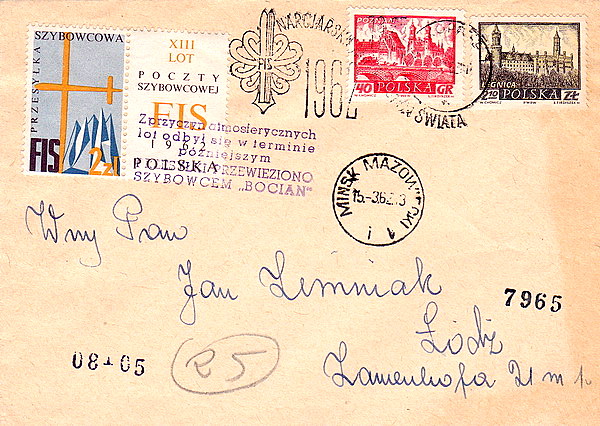 PRZESYŁKA
SZYBOWCOWA
FIS
2zł
XIII
LOT
POCZTY
SZYBOWCOWEJ
FIS
1962
POLSKA
Z przyczyn atmosferycznych
lot odbył się w terminie
późniejszym
PRZEWIEZIONO
SZYBOWCEM „BOCIAN”
NARCIARSKIE
FIS
1962
ŚWIATA
POZNAŃ
40 POLSKA GR
LEGNICA
2,10 POLSKA ZŁ
MIŃSK MAZOWIECKI
15.-3.62
Wny Pan
Jan Lemniak
Łódź
Zamenhofa 21 m 1
7965
08 05
R5